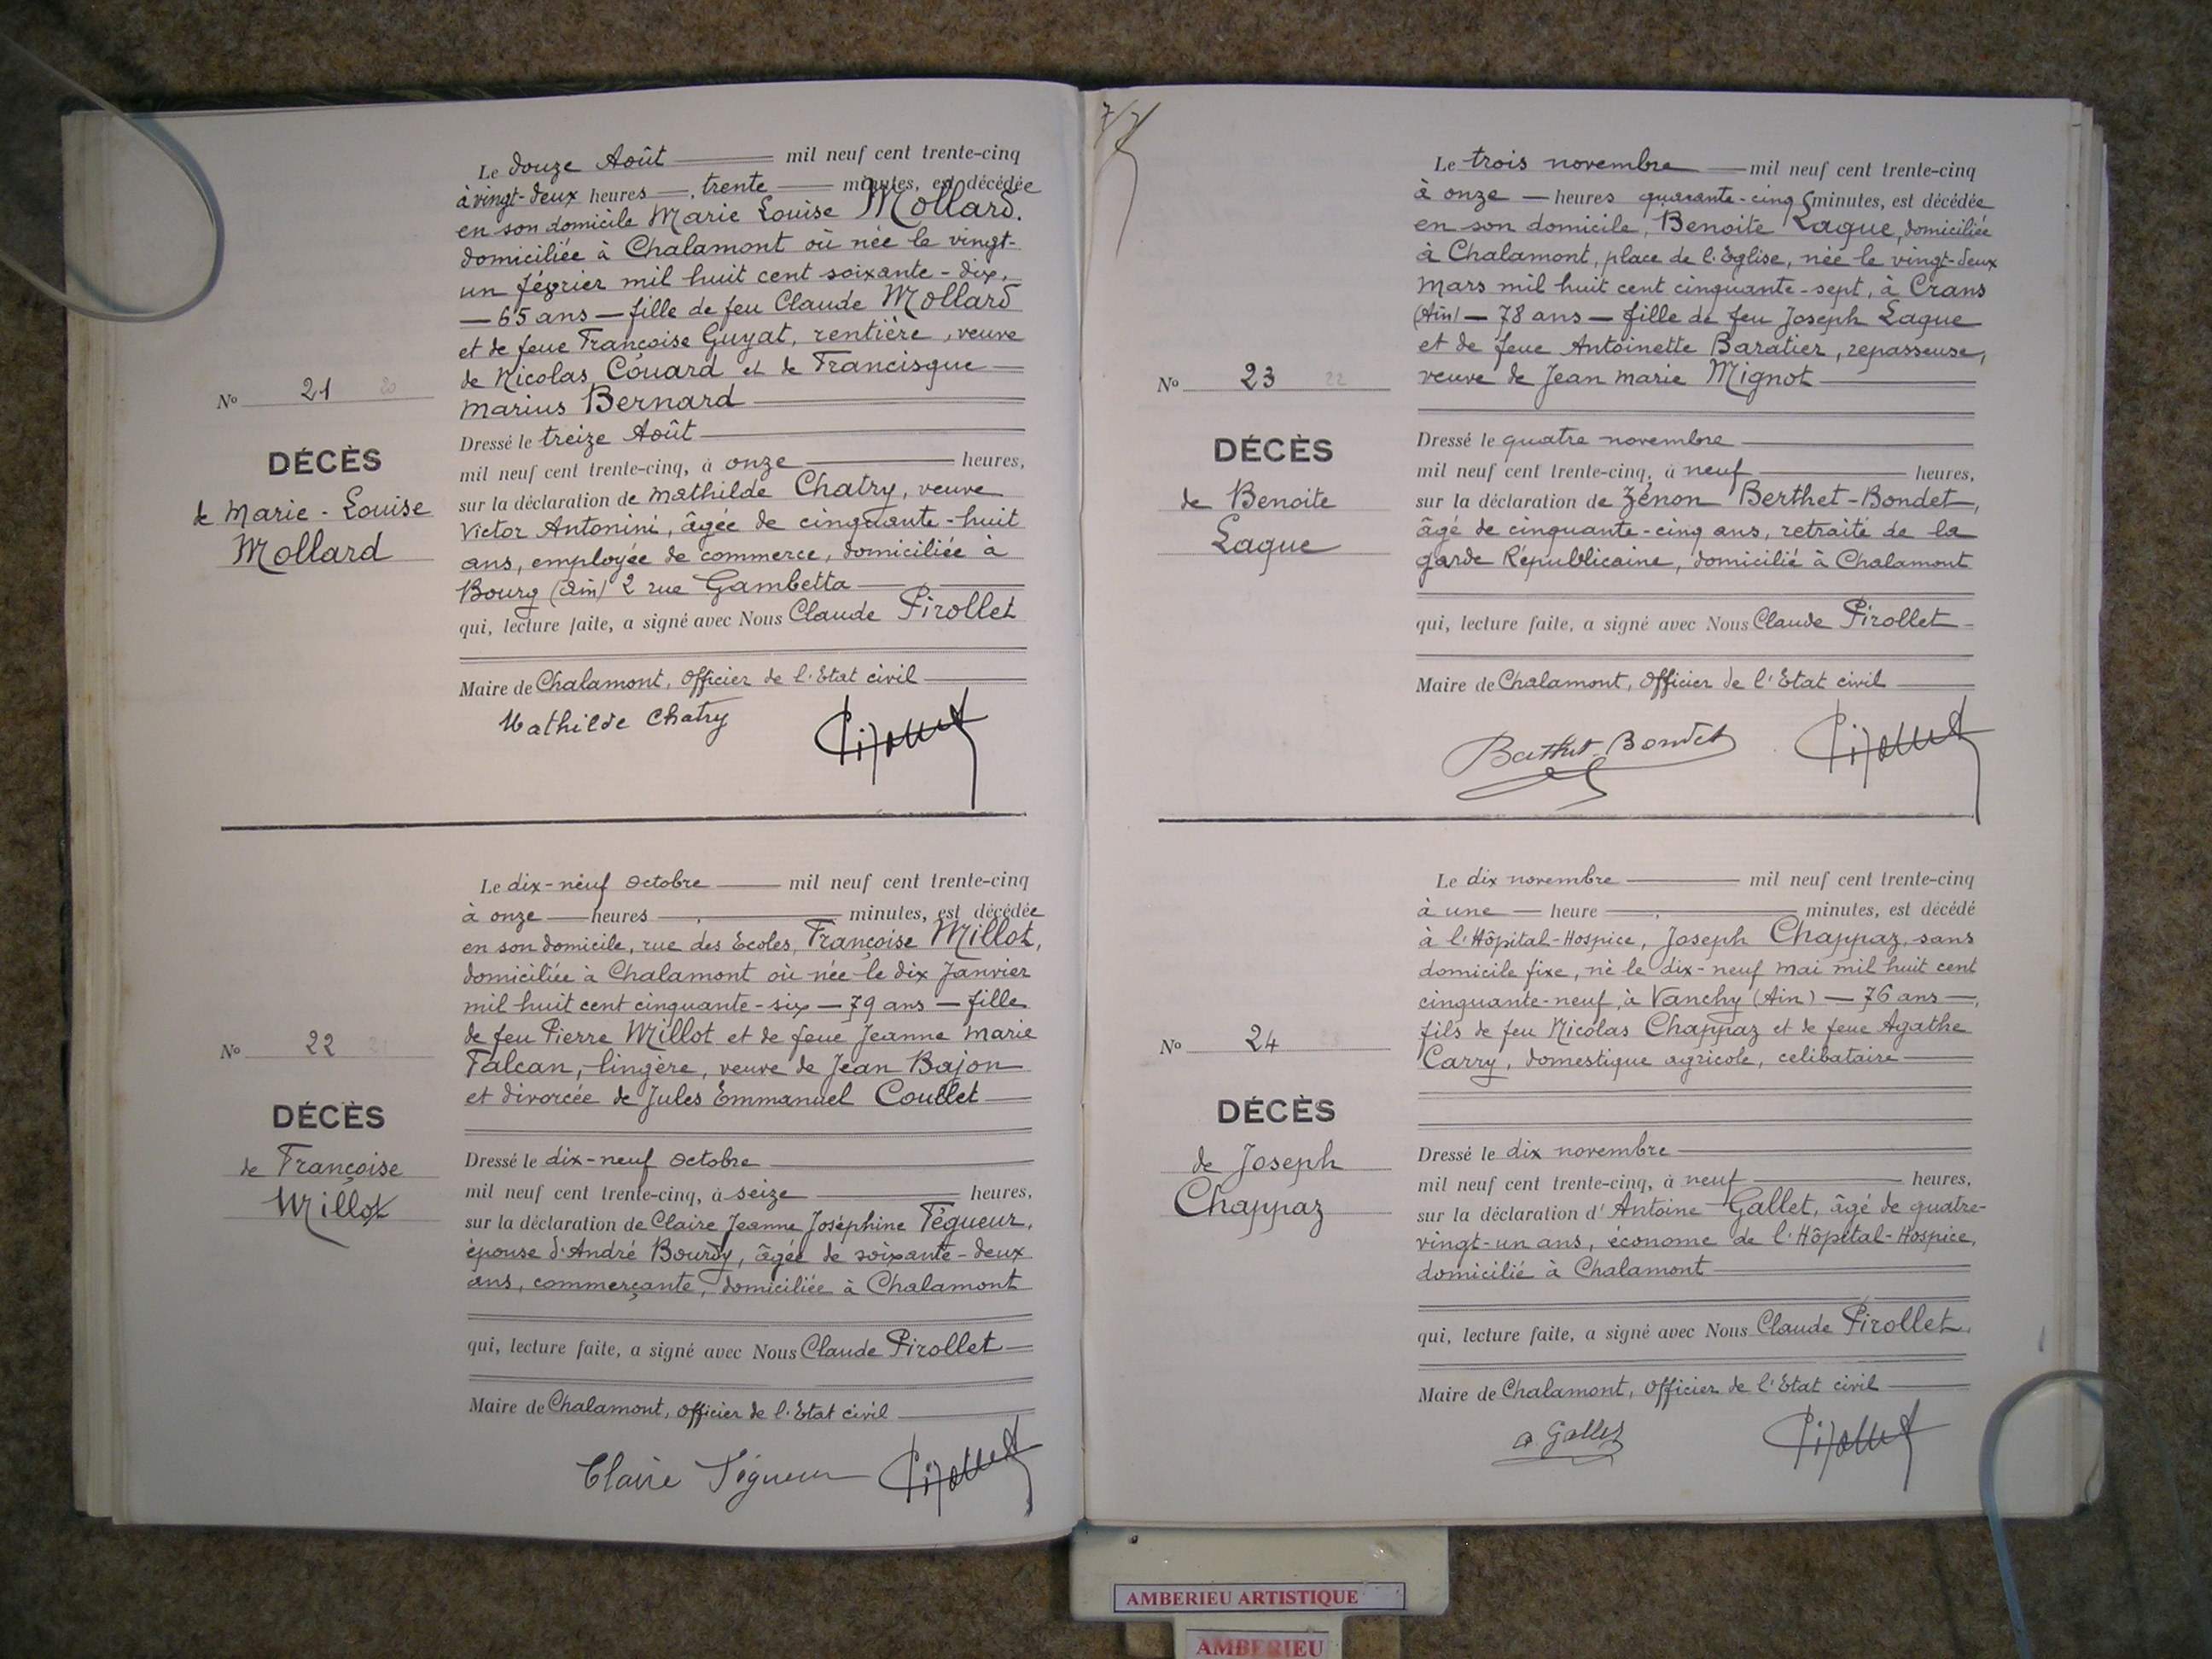 Le douze Août mil neuf cent trente-cinq
à vingt-deux heures, trente minutes, est décédée
en son domicile Marie Louise Mollard.
domiciliée à Chalamont où née le vingt-
un février mil huit cent soixante-dix,
— 65 ans — fille de feu Claude Mollard
et de feue Françoise Guyat, rentière, veuve
de Nicolas Couard et de Francisque
Marius Bernard
Nº 21 20
DÉCÈS
de Marie-Louise
Mollard
Dressé le treize Août
mil neuf cent trente-cinq, à onze heures,
sur la déclaration de Mathilde Chatry, veuve
Victor Antonini, âgée de cinquante-huit
ans, employée de commerce, domiciliée à
Bourg (Ain) 2 rue Gambetta
qui, lecture faite, a signé avec Nous Claude Pirollet
Maire de Chalamont, Officier de l'Etat civil
Mathilde Chatry Pirollet
Le dix-neuf Octobre mil neuf cent trente-cinq
à onze heures, minutes, est décédée
en son domicile, rue des Ecoles, Françoise Millot,
domiciliée à Chalamont où née le dix Janvier
mil huit cent cinquante-six — 79 ans — fille
de feu Pierre Millot et de feue Jeanne Marie
Falcan, lingère, veuve de Jean Bajon
et divorcée de Jules Emmanuel Coullet
Nº 22 21
DÉCÈS
de Françoise
Millot
Dressé le dix-neuf Octobre
mil neuf cent trente-cinq, à seize heures,
sur la déclaration de Claire Jeanne Joséphine Tégueur,
épouse d'André Bourdy, âgée de soixante-deux
ans, commerçante, domiciliée à Chalamont
qui, lecture faite, a signé avec Nous Claude Pirollet
Maire de Chalamont, Officier de l'Etat civil
Claire Tégueur Pirollet
Le trois novembre mil neuf cent trente-cinq
à onze — heures quarante-cinq minutes, est décédée
en son domicile, Benoite Laque, domiciliée
à Chalamont, place de l'Eglise, née le vingt-deux
Mars mil huit cent cinquante-sept, à Crans
(Ain) — 78 ans — fille de feu Joseph Laque
et de feue Antoinette Baratier, repasseuse,
veuve de Jean Marie Mignot
Nº 23 22
DÉCÈS
de Benoite
Laque
Dressé le quatre novembre
mil neuf cent trente-cinq, à neuf heures,
sur la déclaration de Zénon Berthet-Bondet,
âgé de cinquante-cinq ans, retraité de la
garde Républicaine, domicilié à Chalamont
qui, lecture faite, a signé avec Nous Claude Pirollet
Maire de Chalamont, Officier de l'Etat civil
Berthet-Bondet Pirollet
Le dix novembre mil neuf cent trente-cinq
à une — heure, minutes, est décédé
à l'Hôpital-Hospice, Joseph Chappaz, sans
domicile fixe, né le dix-neuf Mai mil huit cent
cinquante-neuf, à Vanchy (Ain) — 76 ans —,
fils de feu Nicolas Chappaz et de feue Agathe
Carry, domestique agricole, celibataire
Nº 24 23
DÉCÈS
de Joseph
Chappaz
Dressé le dix novembre
mil neuf cent trente-cinq, à neuf heures,
sur la déclaration d'Antoine Gallet, âgé de quatre-
vingt-un ans, économe de l'Hôpital-Hospice,
domicilié à Chalamont
qui, lecture faite, a signé avec Nous Claude Pirollet,
Maire de Chalamont, Officier de l'Etat civil
a. Gallet Pirollet
AMBERIEU ARTISTIQUE
AMBERIEU